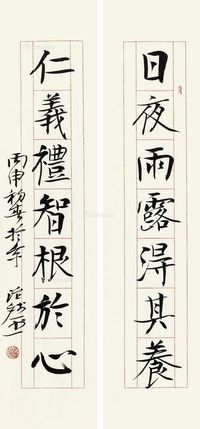 日夜雨露得其養
仁義禮智根於心
丙申初春於京